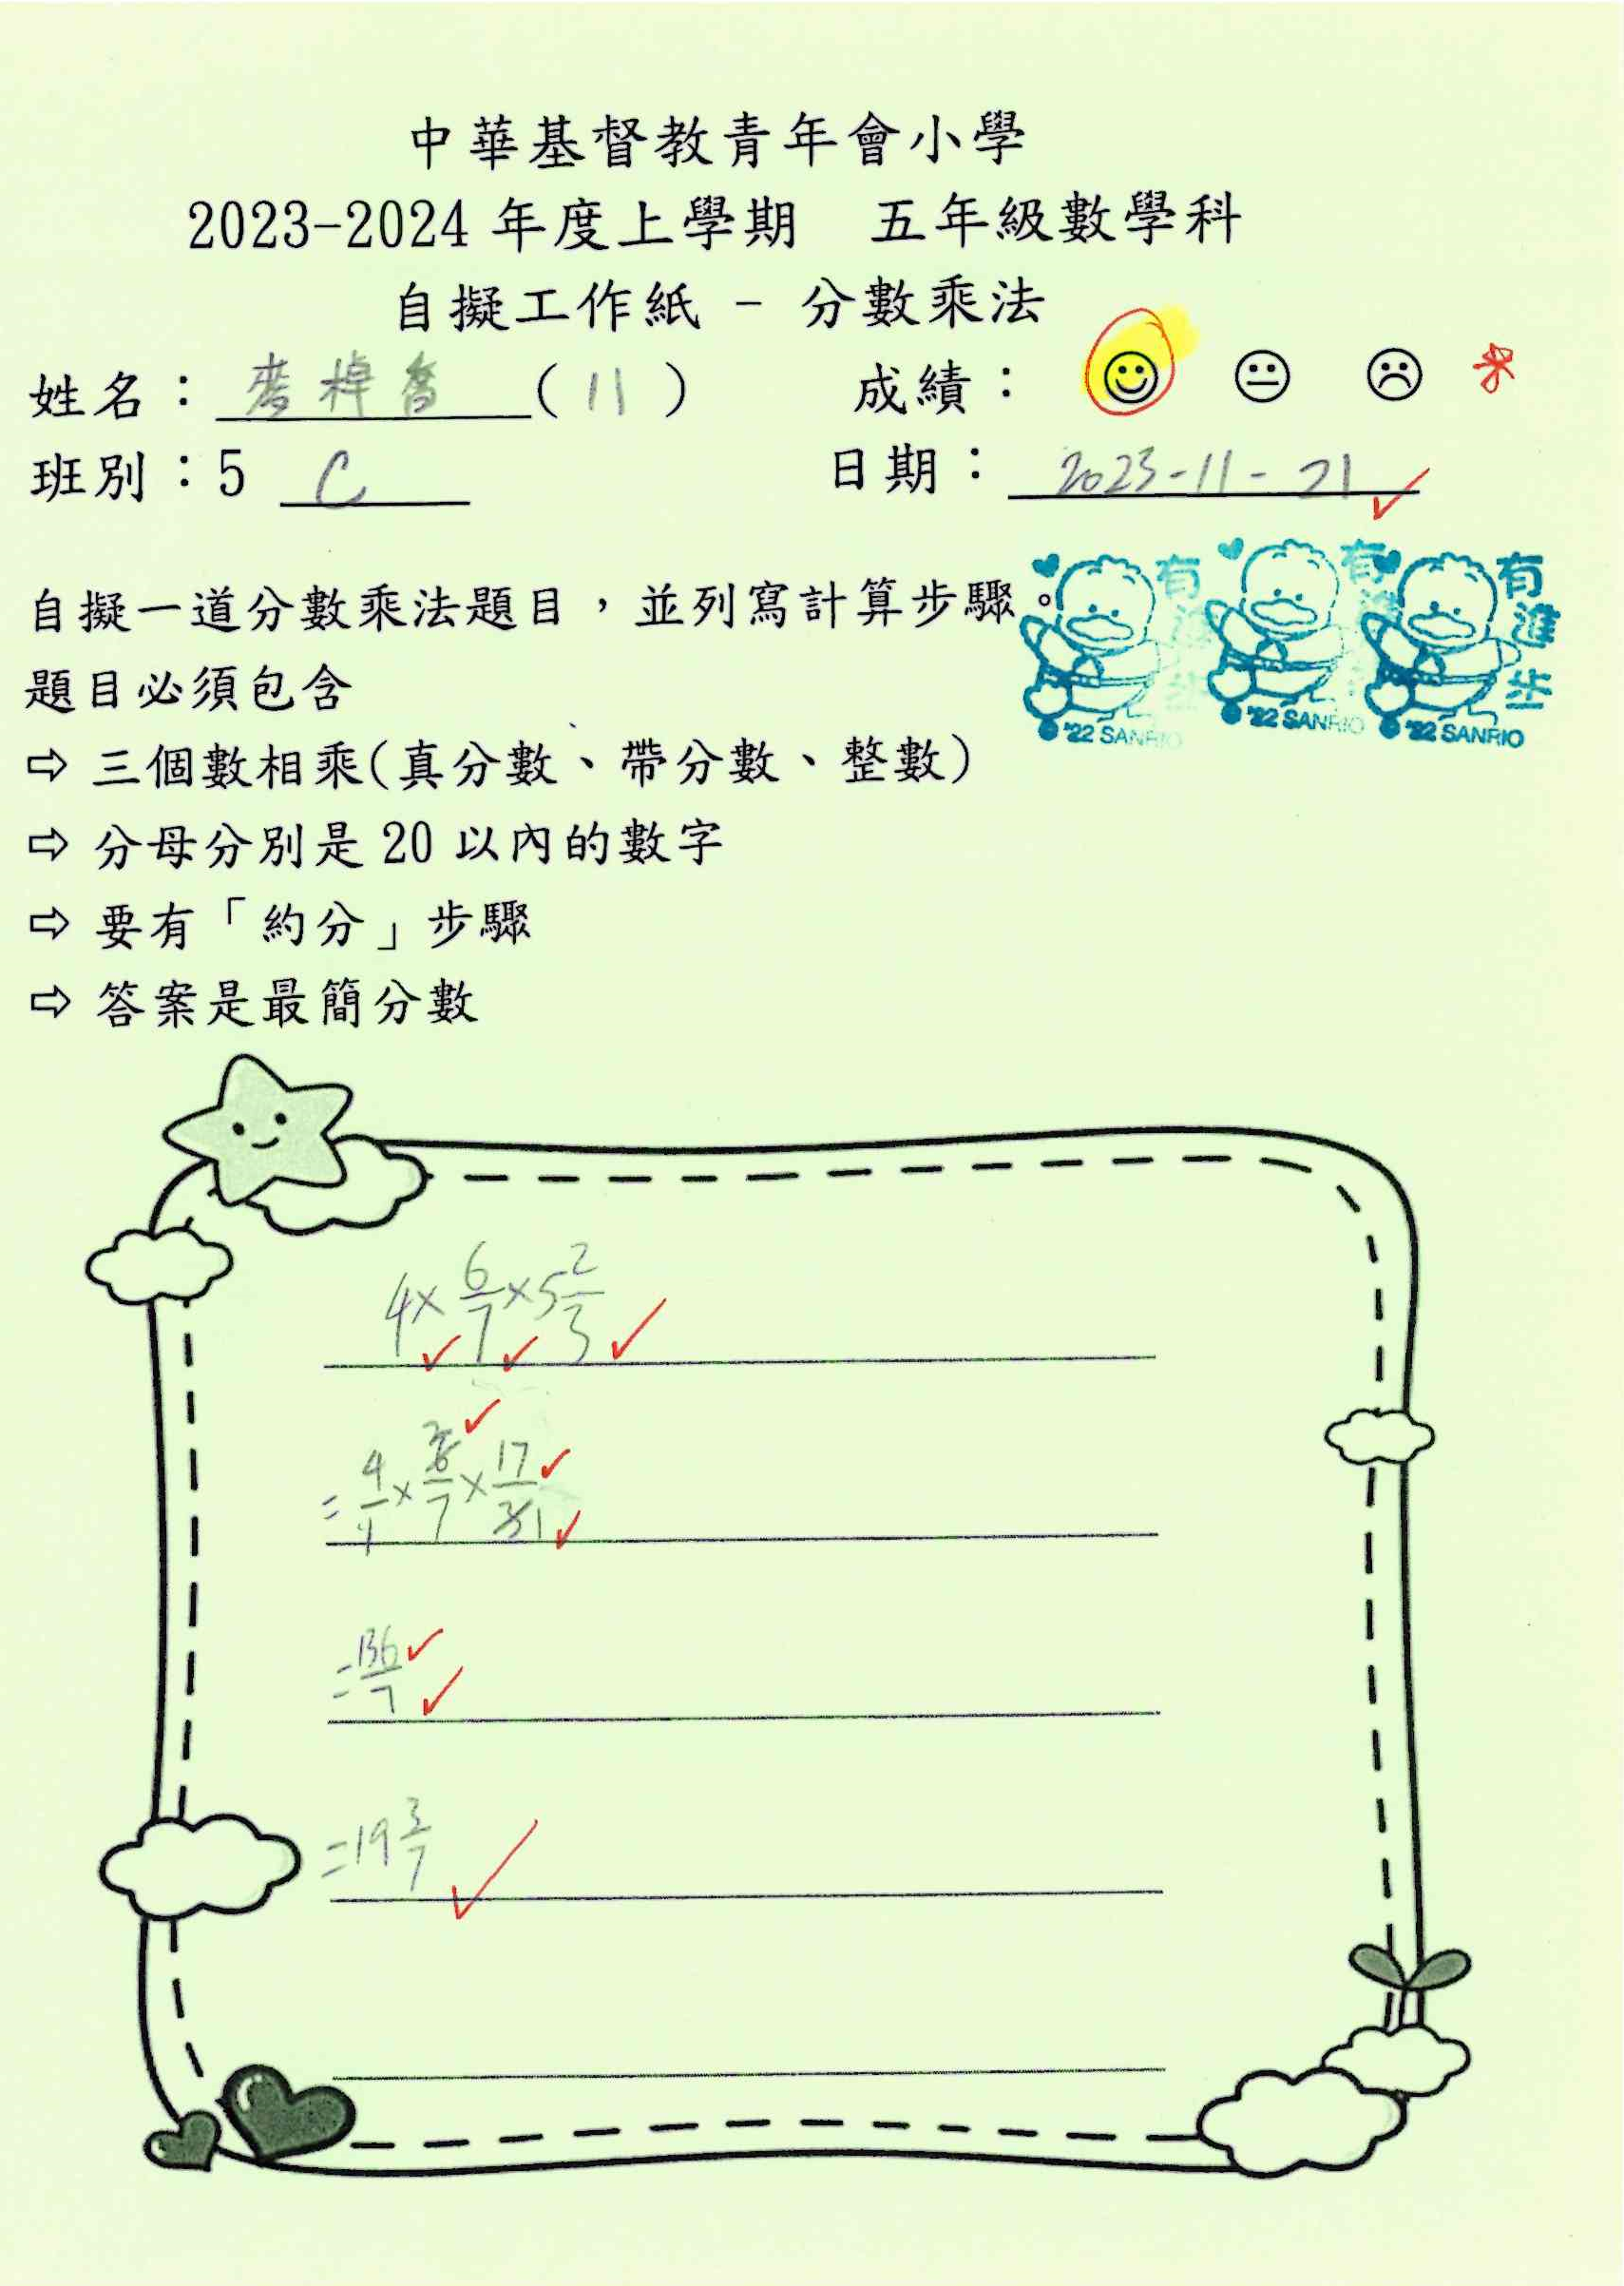 中華基督教青年會小學
2023-2024 年度上學期 五年級數學科
自擬工作紙 - 分數乘法
姓名： 麥棹喬 ( 11 ) 成績：
班別：5 C 日期： 2023-11-21
自擬一道分數乘法題目，並列寫計算步驟。
題目必須包含
⇨ 三個數相乘(真分數、帶分數、整數)
⇨ 分母分別是 20 以內的數字
⇨ 要有「約分」步驟
⇨ 答案是最簡分數
有進步 有進 有進步
'22 SANRIO '22 SANRIO '22 SANRIO
4×6/7×5 2/3
=4/1×6/7×17/3 1
=136/7
=19 3/7